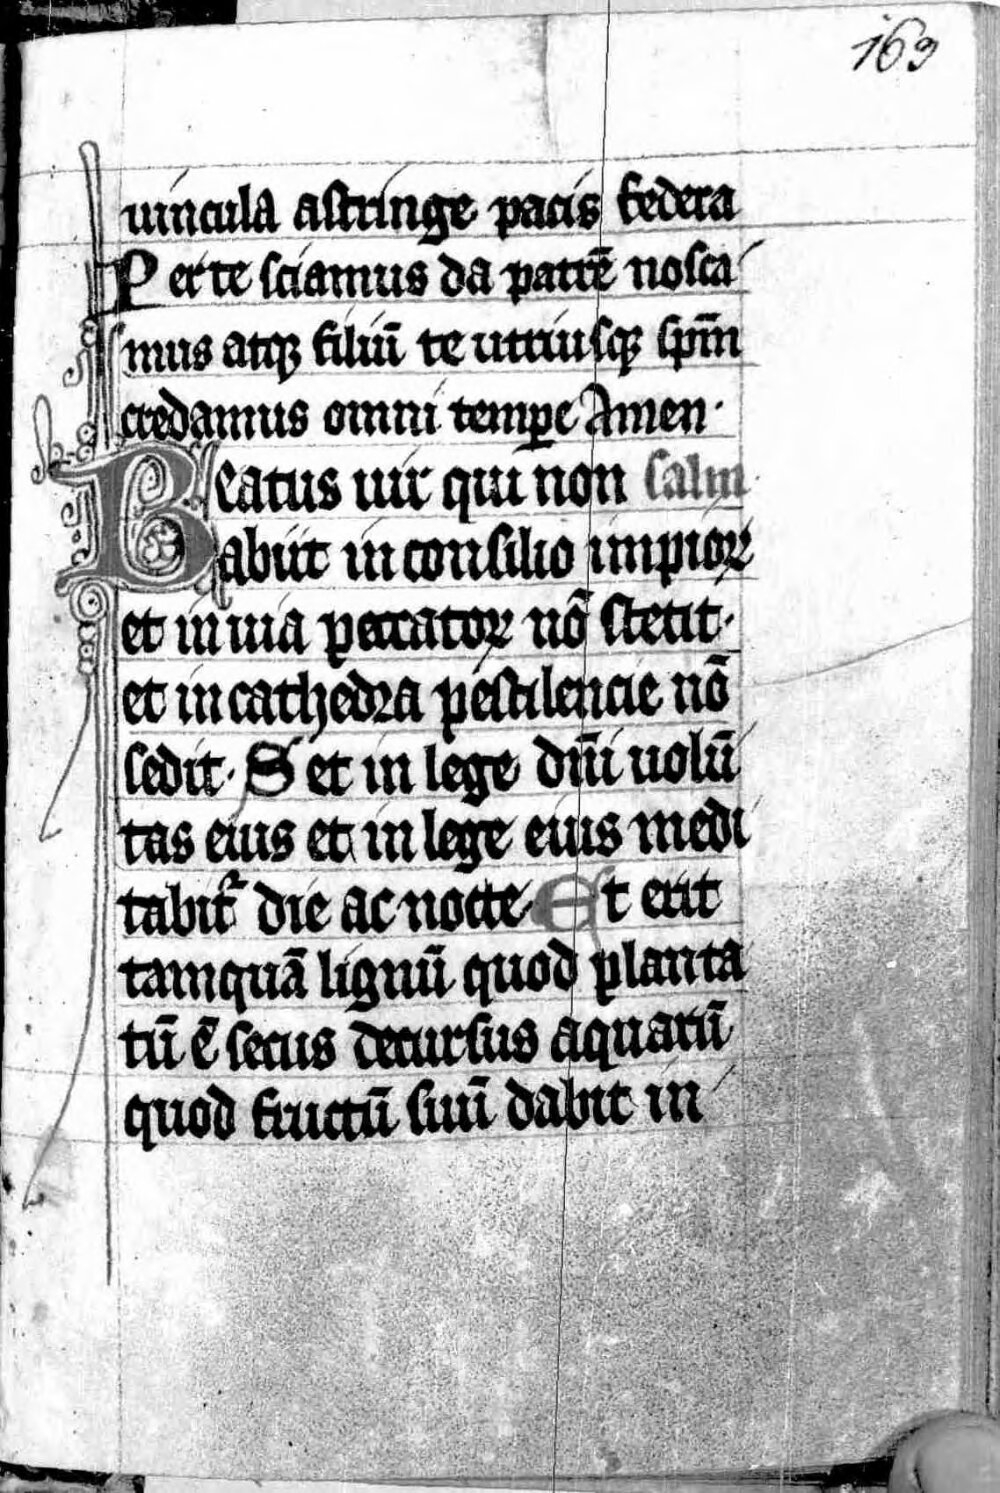 163
uincula astringe pacis federa
Per te sciamus da patrē nosca
mus atqꝫ filiū te utriusqꝫ sp̄m
credamus omni temꝑe Amen·
Beatus uir qui non salm
abiit in consilio impioꝝ
et in uia peccatoꝝ nō stetit·
et in cathedra pestilencie nō
sedit· Set in lege dn̄i uolū
tas eius et in lege eius medi
tabit᷑ die ac nocte Et erit
tamquā lignū quod planta
tū ē secus decursus aquarū
quod fructū suū dabit in